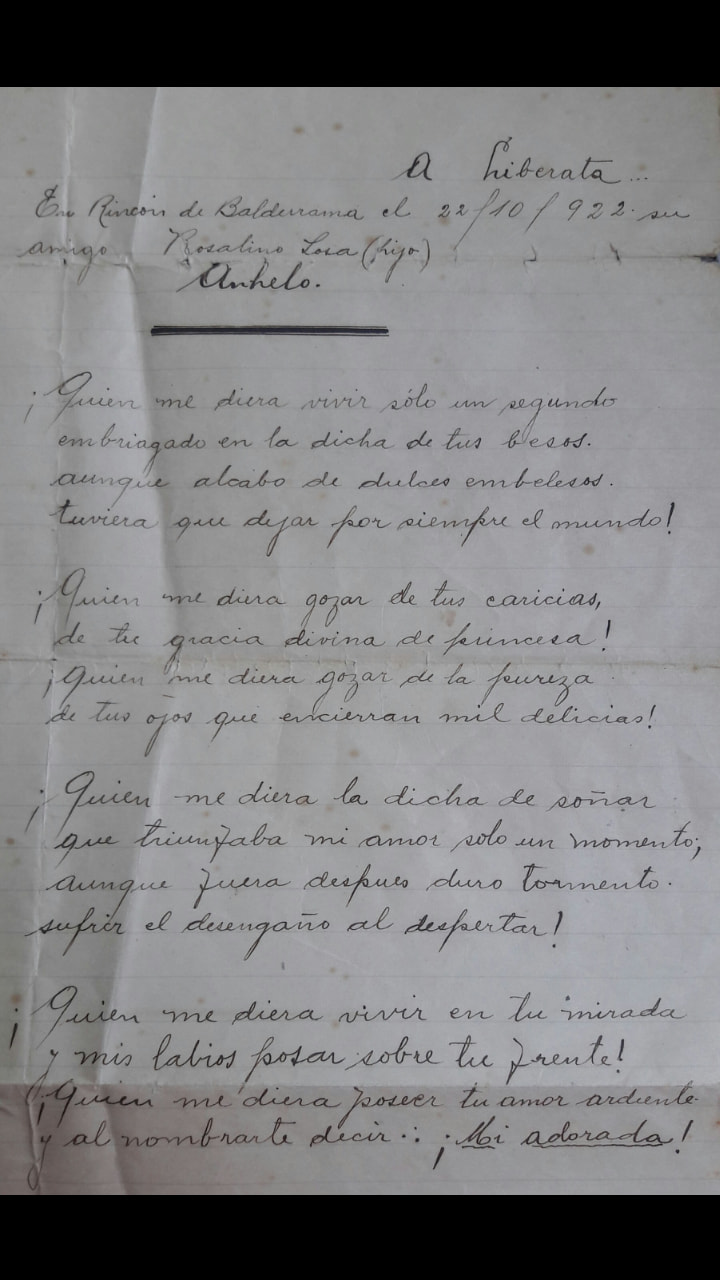 A Liberata...
En Rincón de Balderrama el 22/10/922. su
amigo Rosalino Sosa (hijo)
Anhelo.
¡Quien me diera vivir sólo un segundo
embriagado en la dicha de tus besos.
aunque alcabo de dulces embelesos.
tuviera que dejar por siempre el mundo!
¡Quien me diera gozar de tus caricias,
de tu gracia divina de princesa!
¡Quien me diera gozar de la pureza
de tus ojos que encierran mil delicias!
¡Quien me diera la dicha de soñar
que triunfaba mi amor solo un momento;
aunque fuera despues duro tormento.
sufrir el desengaño al despertar!
¡Quien me diera vivir en tu mirada
y mis labios posar sobre tu frente!
¡Quien me diera poseer tu amor ardiente.
y al nombrarte decir.:. ¡Mi adorada!